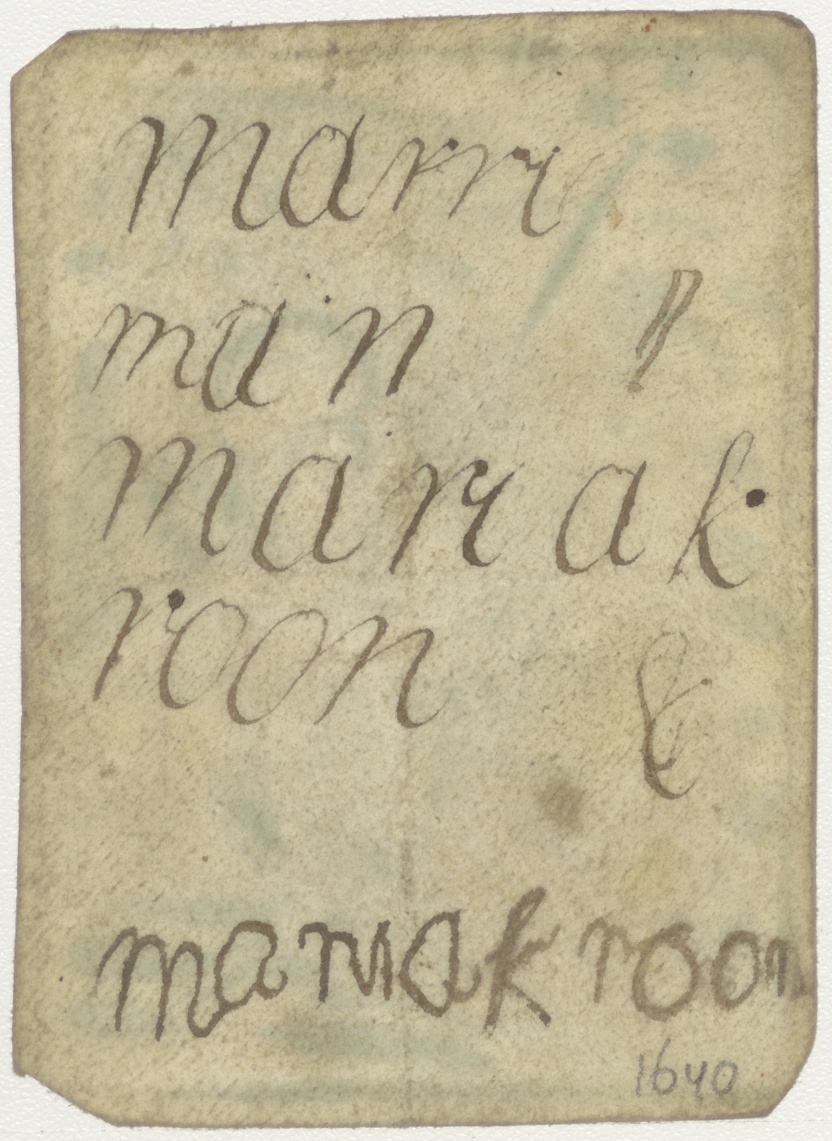 marri
man
mari ak
roon
mariak roon
1640